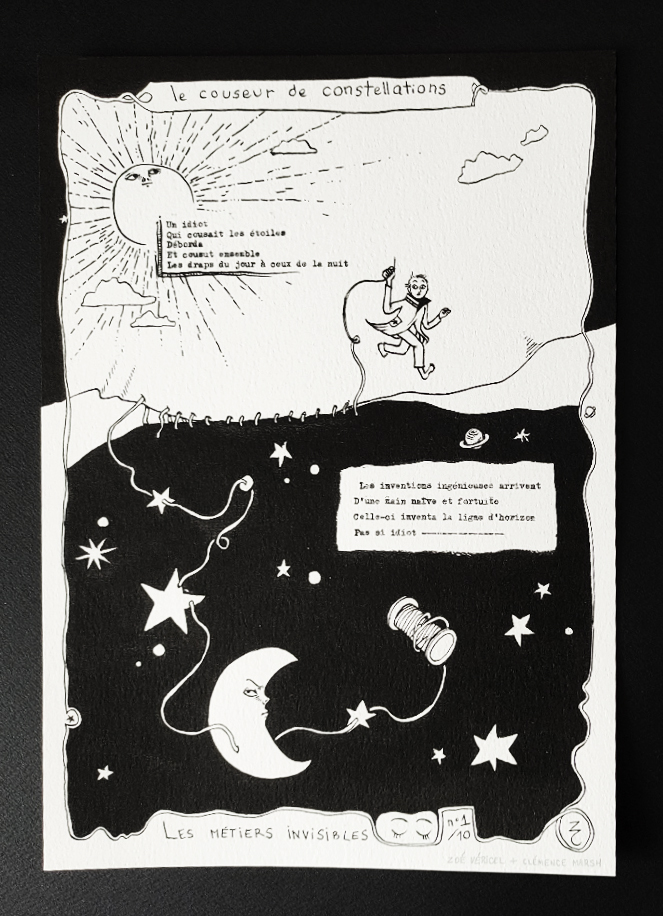 le couseur de constellations
Un idiot
Qui cousait les étoiles
Déborda
Et cousut ensemble
Les draps du jour à ceux de la nuit
Les inventions ingénieuses arrivent
D'une main naïve et fortuite
Celle-ci inventa la ligne d'horizon
Pas si idiot
LES MÉTIERS INVISIBLES
n°1
/10
ZOÉ + CLÉMENCE